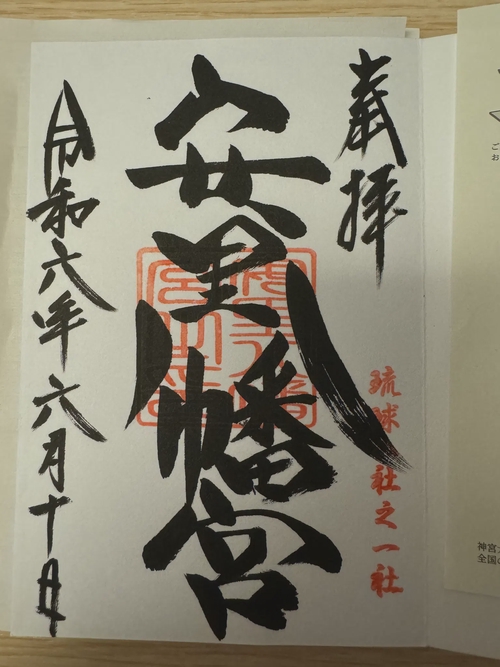 奉拝
琉球八社之一社
安里八幡宮
令和六年六月十日
ご
お
神宮
全国の